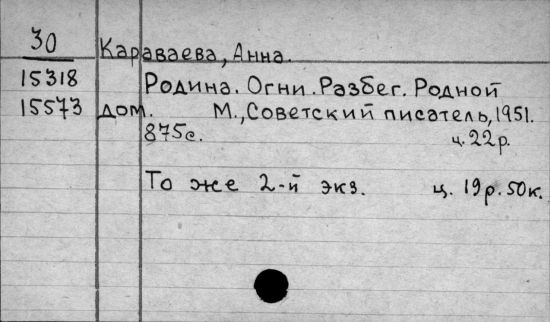 30 Караваева, Анна.
15318 Родина. Огни. Разбег. Родной
15573 дом. М., Советский писатель, 1951.
875с. ц. 22р.
То же 2-й экз. ц. 19р. 50к.